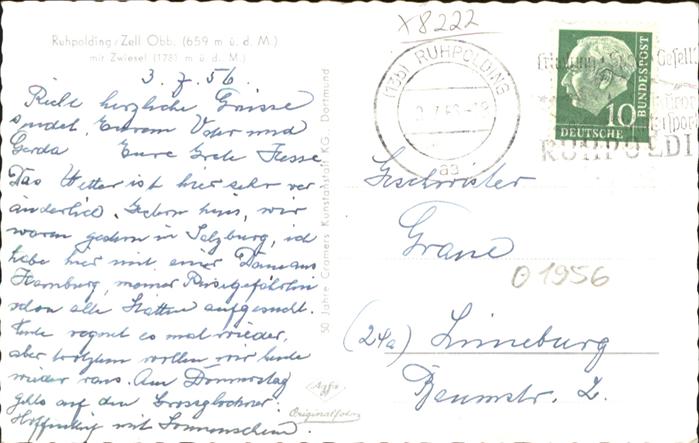 Ruhpolding/Zell Obb. (659 m ü. d. M.)
mit Zwiesel (1781 m ü. d. M.)
3. 7. 56.
Recht herzliche Grüsse
sendet Eurem Vater und
Gerda Eure Grete Hesse
Das Wetter ist hier sehr ver
änderlich. Gestern heiss, wir
waren gestern in Salzburg, ich
habe hier mit einer Dame aus
Hamburg, meiner Reisegefährtin
schon alle Stätten aufgesucht.
Heute regnet es mal wieder,
aber trotzdem wollen wir heute
wieder raus. Am Donnerstag
gehts auf den Grossglockner.
Hoffentlich mit Sonnenschein.
50 Jahre Cramers Kunstanstalt KG., Dortmund
Agfa
Originalfoto
x8222
(13b) RUHPOLDING
aa
RUHPOLDI
10
DEUTSCHE
BUNDESPOST
Geschwister
Grane
01956
(24a) Lüneburg
Baumstr. 2.